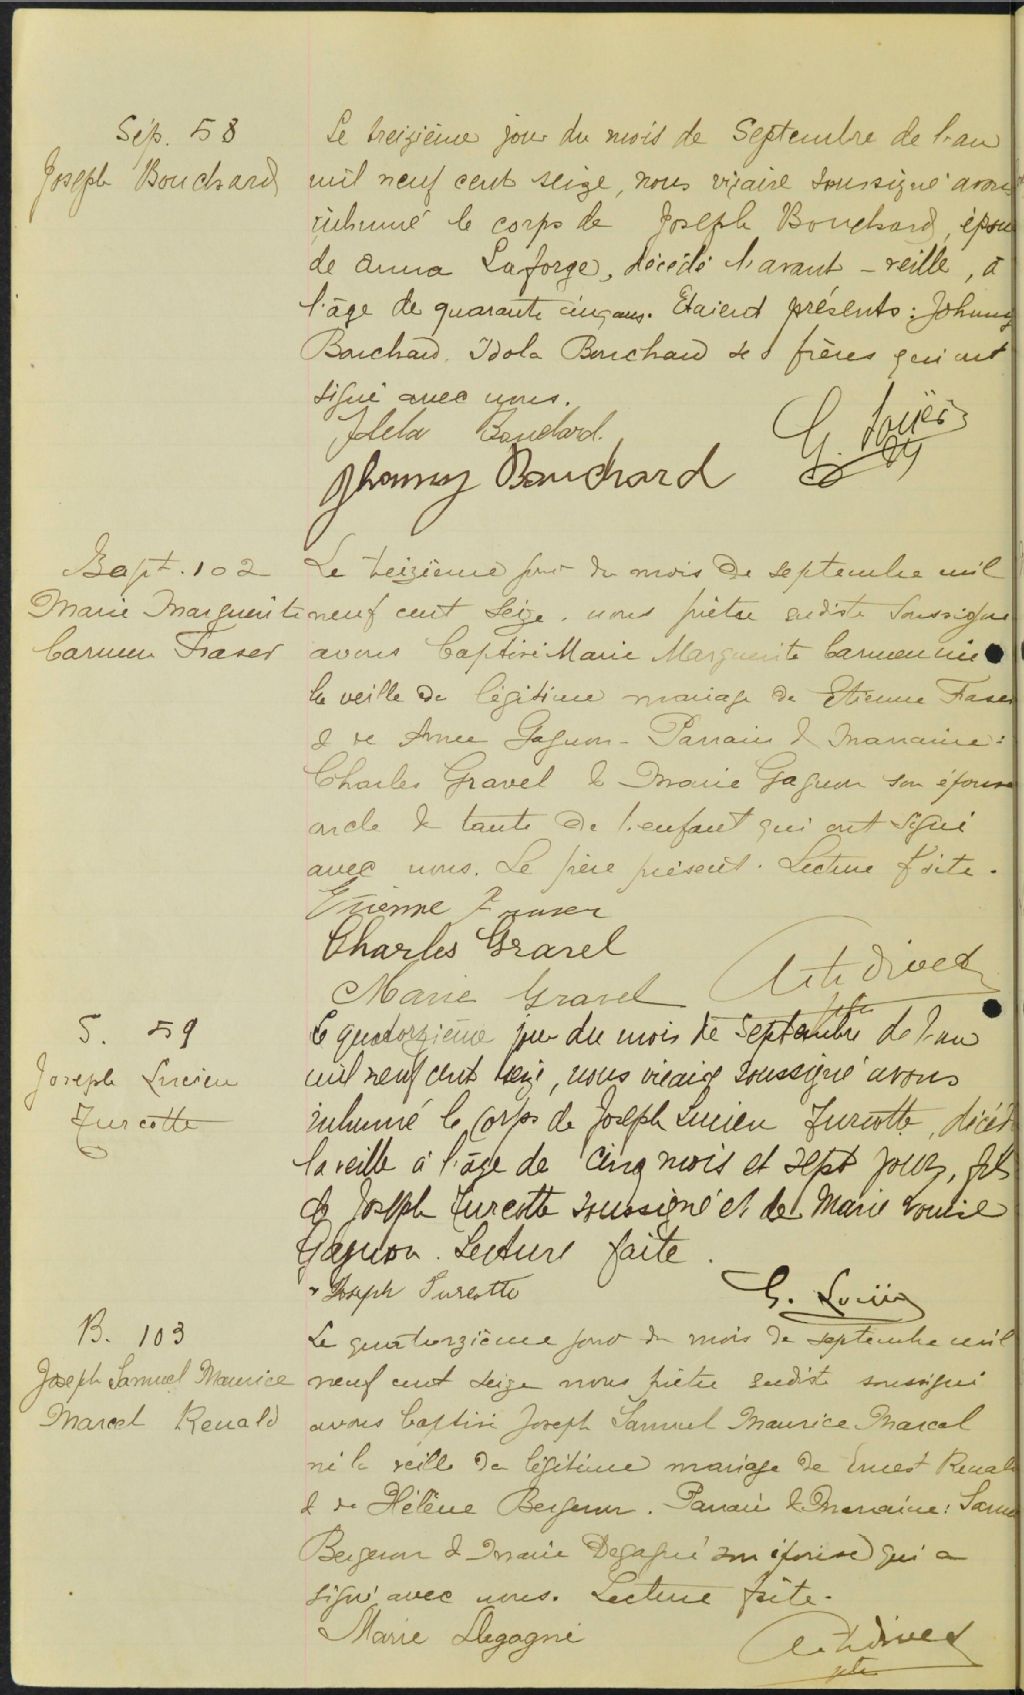 Sép. 58
Joseph Bouchard
Le treizième jour du mois de Septembre de l'an
mil neuf cent seize, nous vicaire soussigné avons
inhumé le corps de Joseph Bouchard, époux
de Anna Laforge, décédé l'avant-veille, à
l'âge de quarante cinq ans. Etaient présents: Johnny
Bouchard. Idola Bouchard ses frères qui ont
signé avec nous.
Idola Bouchard.
Jhonny Bouchard
G.
Bapt. 102
Marie Marguerite
Carmen Fraser
Le treizième jour du mois de septembre mil
neuf cent seize. nous prêtre sudiste soussigné
avons baptisé Marie Marguerite Carmen née
la veille du légitime mariage de Etienne Fraser
& de Gagnon - Parrain & Marraine:
Charles Gravel & Marie Gagnon son épouse
oncle & tante de l'enfant qui ont signé
avec nous. Le père présent. Lecture faite.
Etienne Fraser
Charles Gravel
Marie Gravel
ptre
S. 59
Joseph Lucien
Turcotte
Le quatorzième jour du mois de Septembre de l'an
mil neuf cent seize, nous vicaire soussigné avons
inhumé le corps de Joseph Lucien Turcotte, décédé
la veille à l'âge de cinq mois et sept jours, fils
de Joseph Turcotte soussigné et de Marie Louise
Gagnon. Lecture faite.
Joseph Turcotte
G.
B. 103
Joseph Samuel Maurice
Marcel Renald
Le quatorzième jour du mois de septembre mil
neuf cent seize nous prêtre sudiste soussigné
avons baptisé Joseph Samuel Maurice Marcel
né la veille du légitime mariage de Ernest Renald
& de Hélène Bergeron. Parrain & Marraine: Samuel
Bergeron & Marie Degagné son épouse qui a
signé avec nous. Lecture faite.
Marie Degagné
ptre